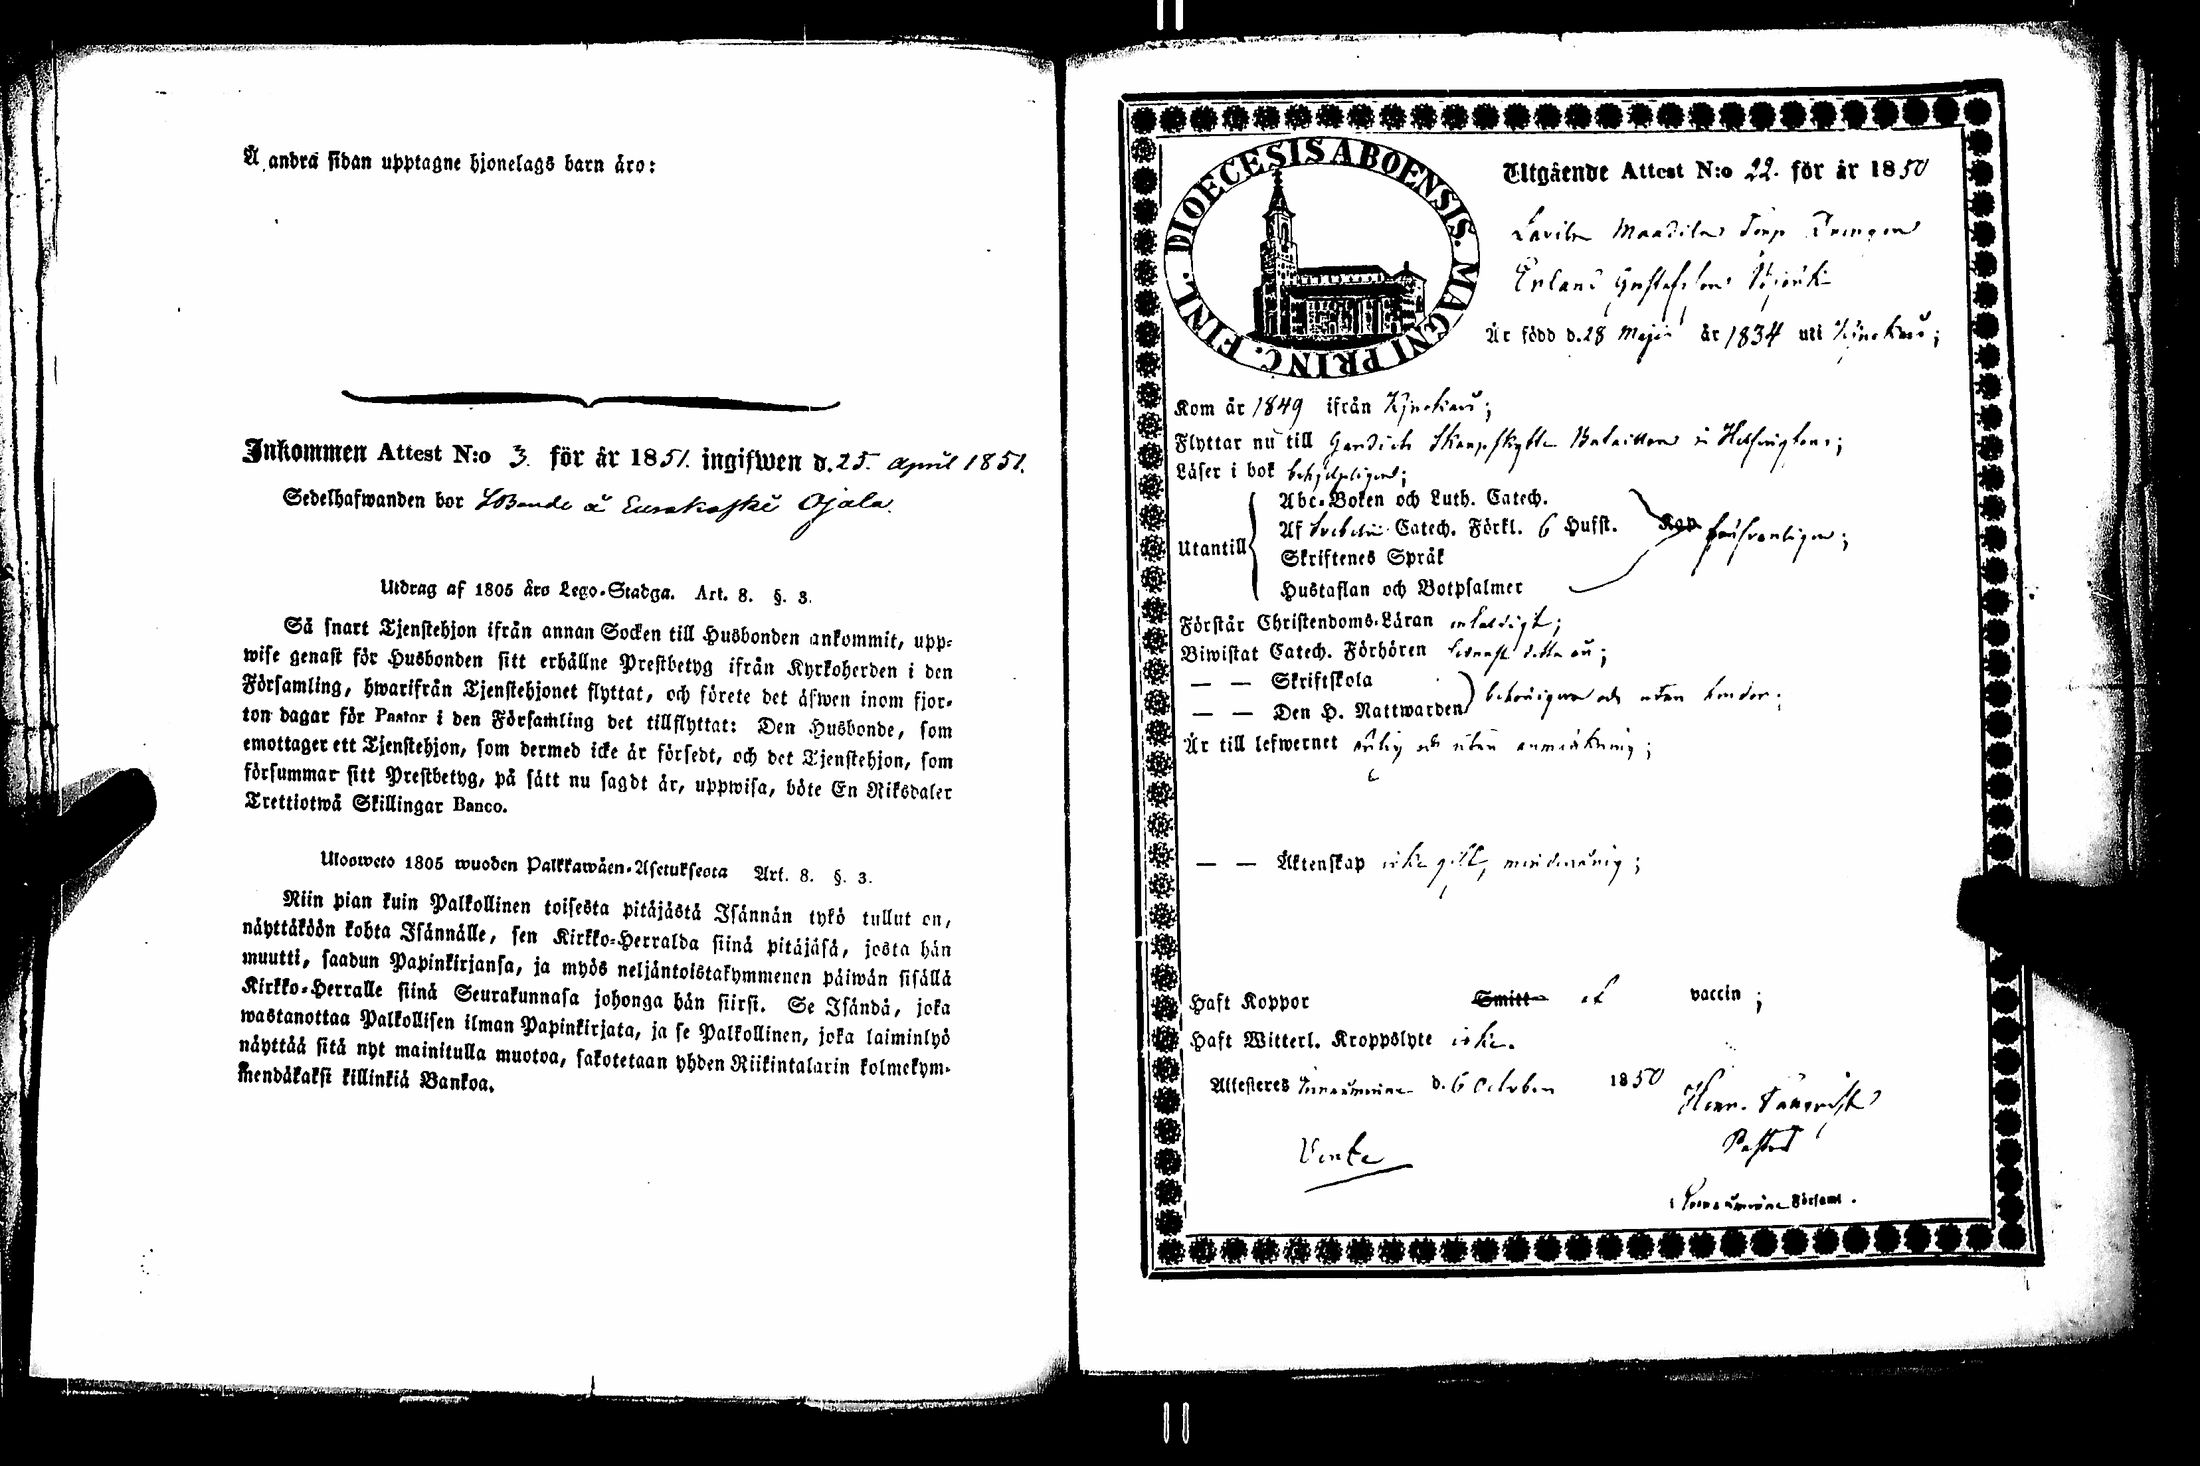 Å andra sidan upptagne hjonelags barn äro:
Inkommen Attest N:o 3. för år 1851. ingifwen d. 25. april 1851.
Sedelhafwanden bor å Eurakoski Ojala.
Utdrag af 1805 års Lego-Stadga. Art. 8. §. 3.
Så snart Tjenstehjon ifrån annan Socken till Husbonden ankommit, upp-
wise genast för Husbonden sitt erhållne Prestbetyg ifrån Kyrkoherden i den
Församling, hwarifrån Tjenstehjonet flyttat, och förete det äfwen inom fjor-
ton dagar för Pastor i den Församling det tillflyttat: Den Husbonde, som
emottager ett Tjenstehjon, som dermed icke är försedt, och det Tjenstehjon, som
försummar sitt Prestbetyg, på sätt nu sagdt är, uppwisa, böte En Riksdaler
Trettiotwå Skillingar Banco.
Ulosweto 1805 wuoden Palkkawäen-Asetuksesta Art. 8. §. 3.
Niin pian kuin Palkollinen toisesta pitäjästä Isännän tykö tullut on,
näyttäköön kohta Isännälle, sen Kirkko-Herralda siinä pitäjäsä, josta hän
muutti, saadun Papinkirjansa, ja myös neljäntoistakymmenen päiwän sisällä
Kirkko-Herralle siinä Seurakunnasa johonga hän siirsi. Se Isändä, joka
wastanottaa Palkollisen ilman Papinkirjata, ja se Palkollinen, joka laiminlyö
näyttää sitä nyt mainitulla muotoa, sakotetaan yhden Riikintalarin kolmekym-
mendäkaksi killinkiä Bankoa.
DIOECESIS ABOENSIS. MAGNI PRINC. FINL.
Utgående Attest N:o 22. för år 1850
Lavila Torp Drengen
Erland Gustafsson
Är född d. 28 Maji år 1834 uti Kjukais;
Kom år 1849 ifrån Kjukais;
Flyttar nu till Skarpskytte Bataillon i Helsingfors;
Läser i bok behjelpligen;
Abc-Boken och Luth. Catech.
Af Svebelii Catech. Förkl. 6 Hufst. Kap försvarligen;
Utantill
Skriftenes Språk
Hustaflan och Botpsalmer
Förstår Christendoms-Läran enfaldigt;
Biwistat Catech. Förhören sednast detta år;
— — Skriftskola
— — Den H. Nattwarden behörigen och utan hinder;
Är till lefwernet ärlig och utan anmärkning;
— — Äktenskap icke gift, minderårig;
Haft Koppor Smitt af vaccin;
Haft Witterl. Kroppslyte icke.
Attesteres d. 6 October 1850
Henr.
Pastor
Verte
Församl.